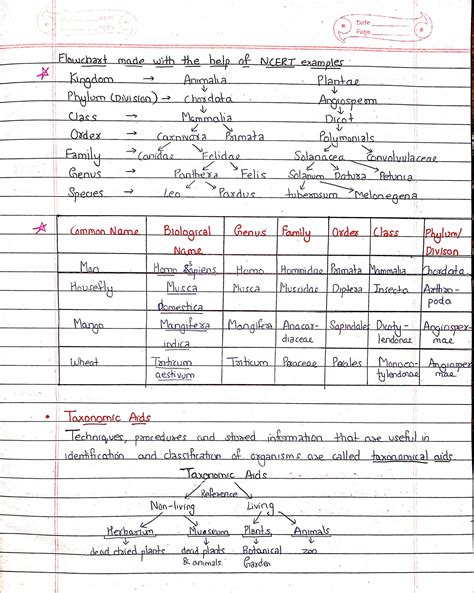 Date
Page
Flowchart made with the help of NCERT examples
Kingdom → Animalia Plantae
Phylum (Division) → Chordata Angiosperm
Class → Mammalia Dicot
Order → Carnivora Primata Polymonials
Family → Canidae Felidae Solanacea Convolvulaceae
Genus → Panthera Felis Solanum Datura Petunia
Species → Leo Pardus tuberosum Melonegena
Common Name Biological Name Genus Family Order Class Phylum/Divison
Man Homo Sapiens Homo Hominidae Primata Mammalia Chordata
Housefly Musca domestica Musca Muscidae Diptera Insecta Arthropoda
Mango Mangifera indica Mangifera Anacardiaceae Sapindales Dicotylendonae Angiospermae
Wheat Triticum aestivum Triticum Poaceae Poales Monocotylendonae Angiospermae
• Taxonomic Aids
Techniques, procedures and stored information that are useful in
identification and classification of organisms are called taxonomical aids.
Taxonomic Aids
Reference
Non-living Living
Herbarium Museum Plants Animals
dead dried plants dead plants Botanical zoo
& animals Garden